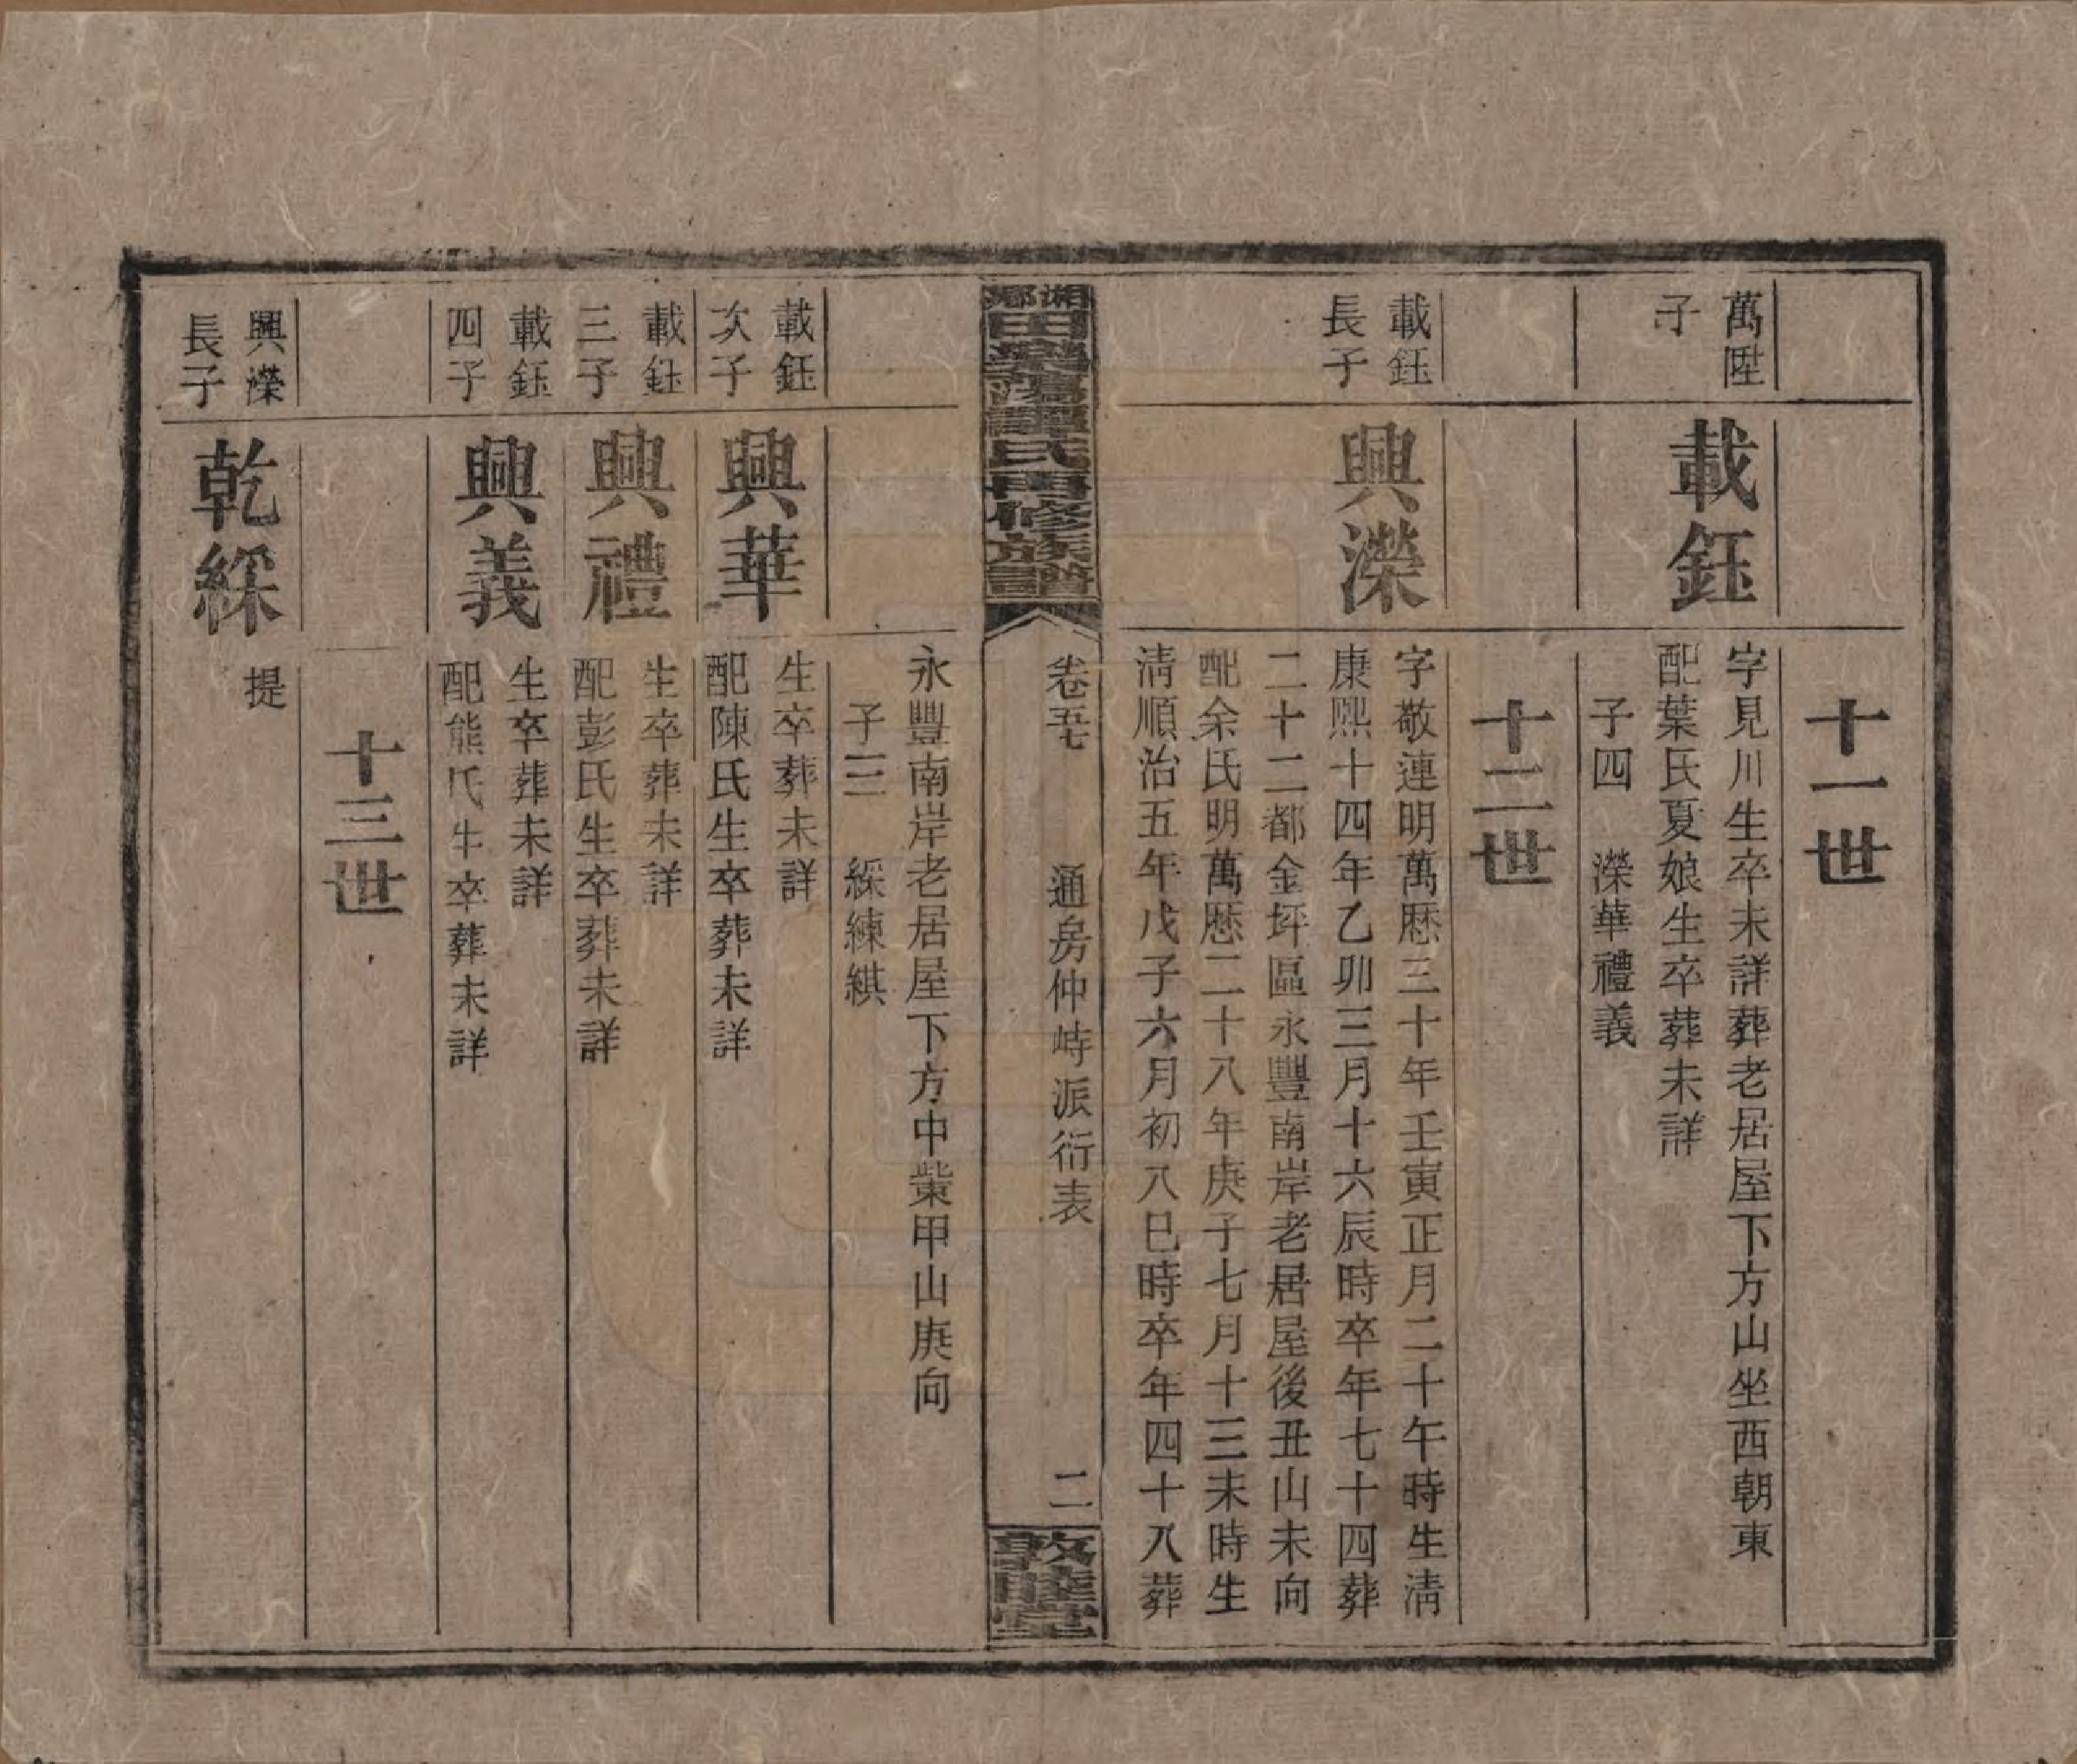 十一世
萬陞
子
載鈺
字見川生卒未詳葬老居屋下方山坐西朝東
配葉氏夏娘生卒葬未詳
子四　濚華禮義
十二世
載鈺
長子
興濚
字敬連明萬歷三十年壬寅正月二十午時生清
康熙十四年乙卯三月十六辰時卒年七十四葬
二十二都金坪區永豐南岸老居屋後丑山未向
配余氏明萬歷二十八年庚子七月十三未時生
清順治五年戊子六月初八巳時卒年四十八葬
湘鄉田樂蕩譚氏再修族譜
卷五七　通房仲峙派衍表　二
敦睦堂
永豐南岸老居屋下方中柴甲山庚向
子三　綵練綨
載鈺
次子
興華
生卒葬未詳
配陳氏生卒葬未詳
載鈺
三子
興禮
生卒葬未詳
配彭氏生卒葬未詳
載鈺
四子
興義
生卒葬未詳
配熊氏生卒葬未詳
十三世
興濚
長子
乾綵
提